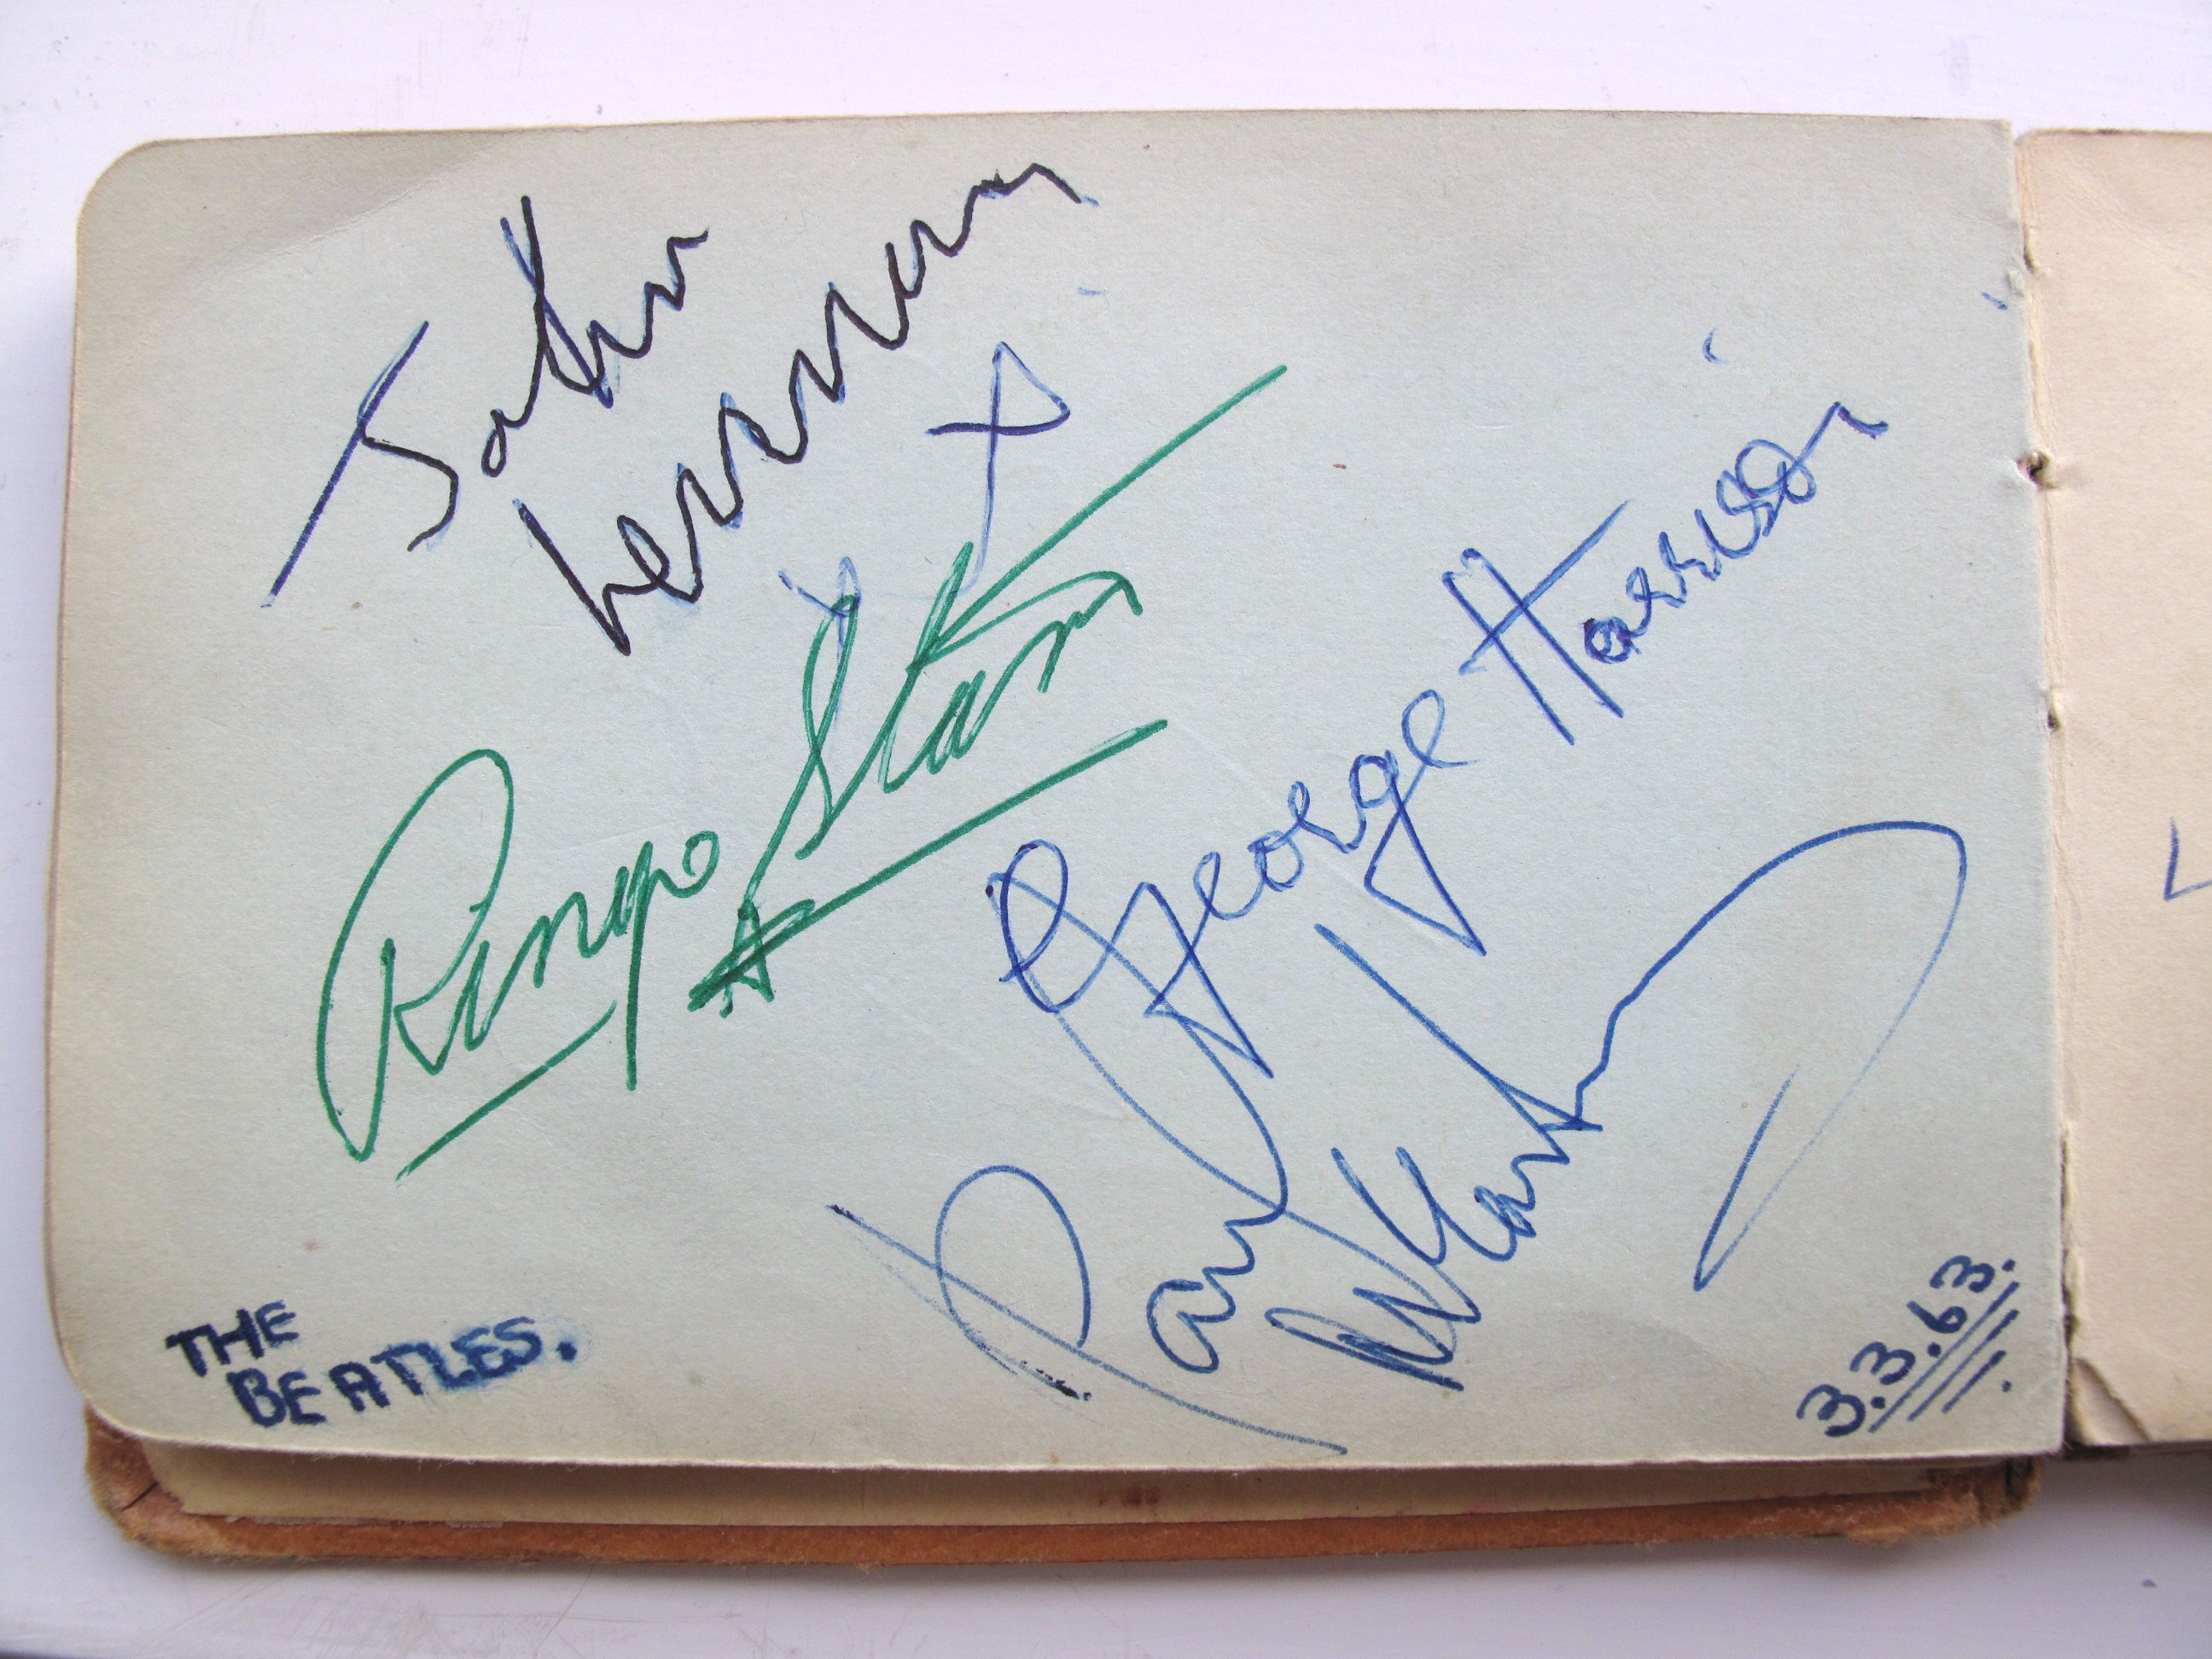 John
Lennon
X
X
Ringo Starr
George Harrison
Paul
McCartney
THE
BEATLES.
3.3.63.